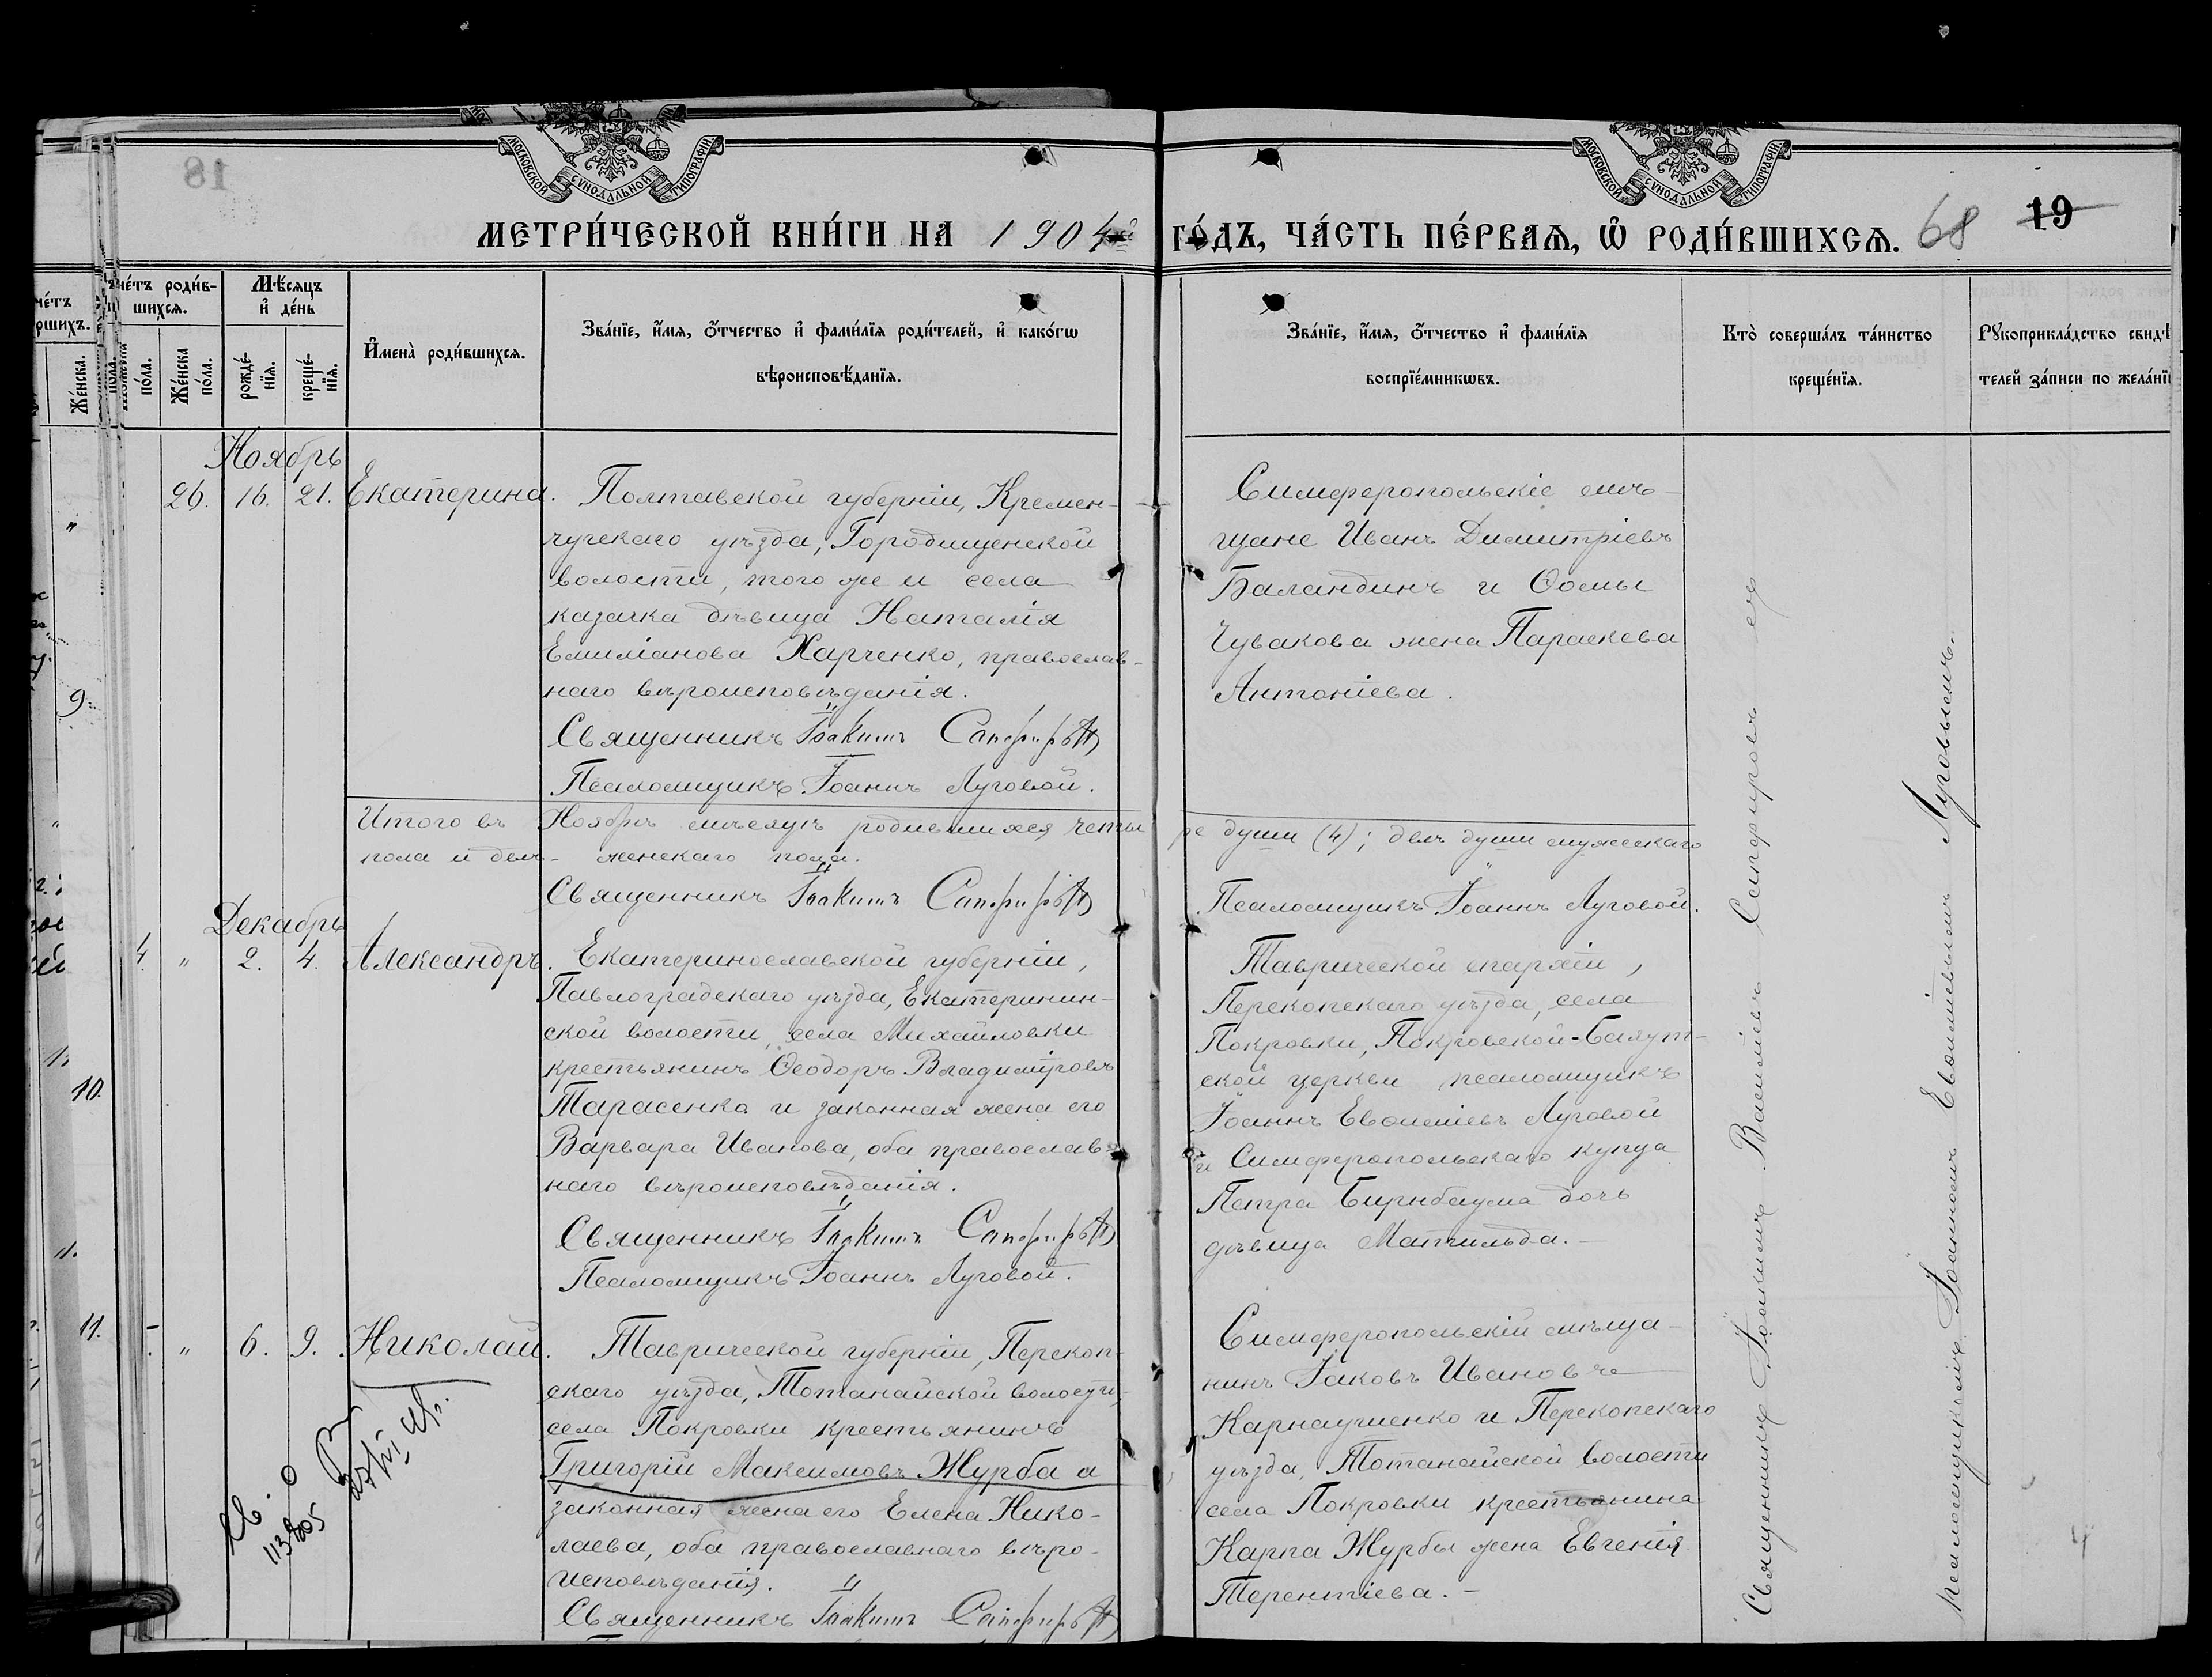 МОСКОВСКОЙ СУНОДАЛЬНОЙ ТИПОГРАФІИ
МОСКОВСКОЙ СУНОДАЛЬНОЙ ТИПОГРАФІИ
18
МЕТРИ́ЧЕСКОЙ КНИ́ГИ НА 1904й ГО́ДЪ, ЧА́СТЬ ПЕ́РВАѦ, Ѡ҆ РОДИ́ВШИХСѦ. 68 19
Сче́тъ роди́в-
шихся.
Мѣ́сяцъ
и҆ де́нь
Же́нска
по́ла.
рожде́-
нїя.
креще́-
нїя.
И҆мена̀ роди́вшихся.
Зва́нїе, и҆́мя, о҆́тчество и҆ фами́лїя роди́телей, и҆ како́гѡ
вѣроисповѣ́данїя.
Зва́нїе, и҆́мя, о҆́тчество и҆ фами́лїя
воспрїе́мникѡвъ.
Кто̀ соверша́лъ та́инство
креще́нїя.
Рꙋкоприкла́дство свидѣ́
телей за́писи по жела́нїю
Ноябрь
26. 16. 21. Екатерина.
Полтавской губерніи, Кремен-
чугскаго уѣзда, Городищенской
волости, того же и села
казачка дѣвица Наталія
Емиліанова Харченко, православ-
наго вѣроисповѣданія.
Священникъ Іоакимъ Сапфировъ
Псаломщикъ Іоаннъ Луговой.
Симферопольскіе мѣ-
щане Иванъ Димитріевъ
Баландинъ и Ѳомы
Чувакова жена Параскева
Антоніева.
Итого въ Ноябрѣ мѣсяцѣ родившихся четыре души (4); двѣ души мужескаго
пола и двѣ - женскаго пола.
Священникъ Іоакимъ Сапфировъ
Псаломщикъ Іоаннъ Луговой.
Декабрь
4 " 2. 4. Александръ.
Екатеринославской губерніи,
Павлоградскаго уѣзда, Екатеринин-
ской волости, села Михайловки
крестьянинъ Ѳеодоръ Владиміровъ
Тарасенко и законная жена его
Варвара Иванова, оба православ-
наго вѣроисповѣданія.
Священникъ Іоакимъ Сапфировъ
Псаломщикъ Іоаннъ Луговой.
Таврической епархіи,
Перекопскаго уѣзда, села
Покровки, Покровской-
ской церкви псаломщикъ
Іоаннъ Евѳиміевъ Луговой
и Симферопольскаго купца
Петра Бирнбаума дочь
дѣвица Матильда.-
" 6. 9. Николай.
Таврической губерніи, Перекоп-
скаго уѣзда, Тотанайской волости,
села Покровки крестьянинъ
Григорій Максимовъ Журба и
законная жена его Елена Нико-
лаева, оба православнаго вѣро-
исповѣданія.
Священникъ Іоакимъ Сапфировъ
Симферопольскій мѣща-
нинъ Іаковъ Ивановъ
Карнаушенко и Перекопскаго
уѣзда, Тотанайской волости
села Покровки крестьянина
Карпа Журбы жена Евгенія
Терентіева.-
Священникъ Іоакимъ Василіевъ Сапфировъ съ
псаломщикомъ Іоанномъ Евѳиміевымъ Луговымъ.
9.
10.
11.